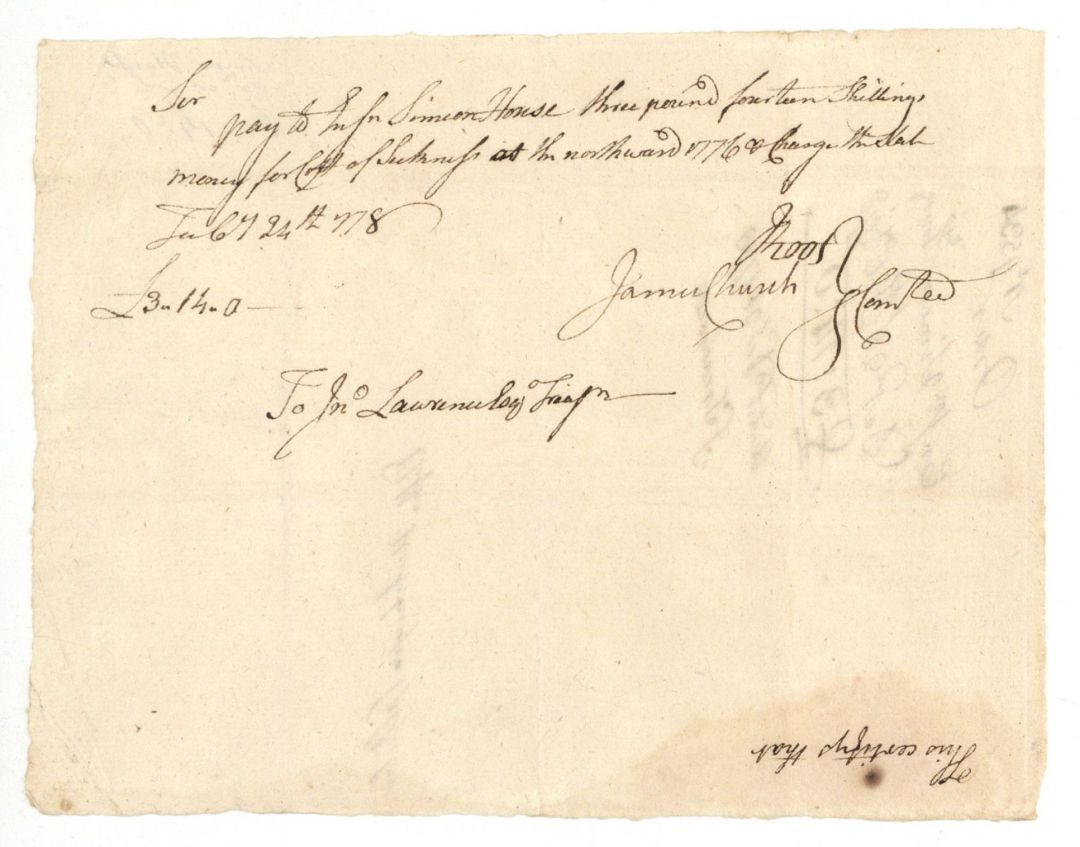 Sir
pay to Ensn Simeon House three pound fourteen Shillings
money for Cost of Sickness at the northward 1776 & Charge the State
Feby 24th 1778
£3 .. 14 .. 0
J Root
James Church
Comtee
To Jno Lawrence Esqr Treasr
This certifys that